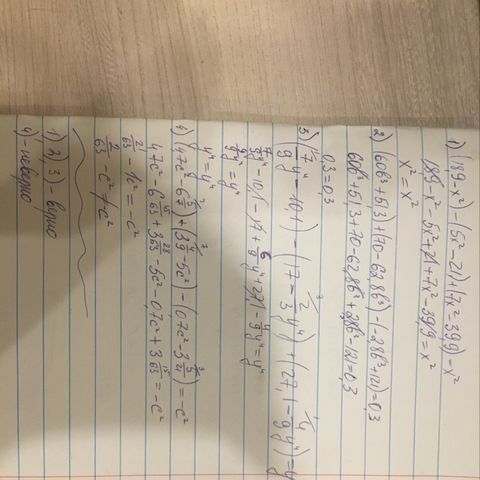 1) (18,9-x²) - (5x²-21)+(7x²-39,9)=x²
18,9-x²-5x²+21+7x²-39,9=x²
x²=x²
2) 60b³+51,3+(70-62,8b³)-(-2,8b³+121)=0,3
60b³+51,3+70-62,8b³+2,8b³-121=0,3
0,3=0,3
3) (7/9y⁴-10,1) - (17-2/3y⁴)+(27,1-4/9y⁴)=y⁴
7/9y⁴-10,1-17+6/9y⁴+27,1-4/9y⁴=y⁴
9/9y⁴=y⁴
y⁴=y⁴
4) (4,7c²-6 5/7)+(3 4/9-5c²)-(0,7c²-3
4,7c²-6 45/63+3 28/63-5c²-0,7c²+3 15/63=-c²
2/63-1c²=-c²
2/63-c²≠-c²
1), 2), 3) - верно
4) - неверно